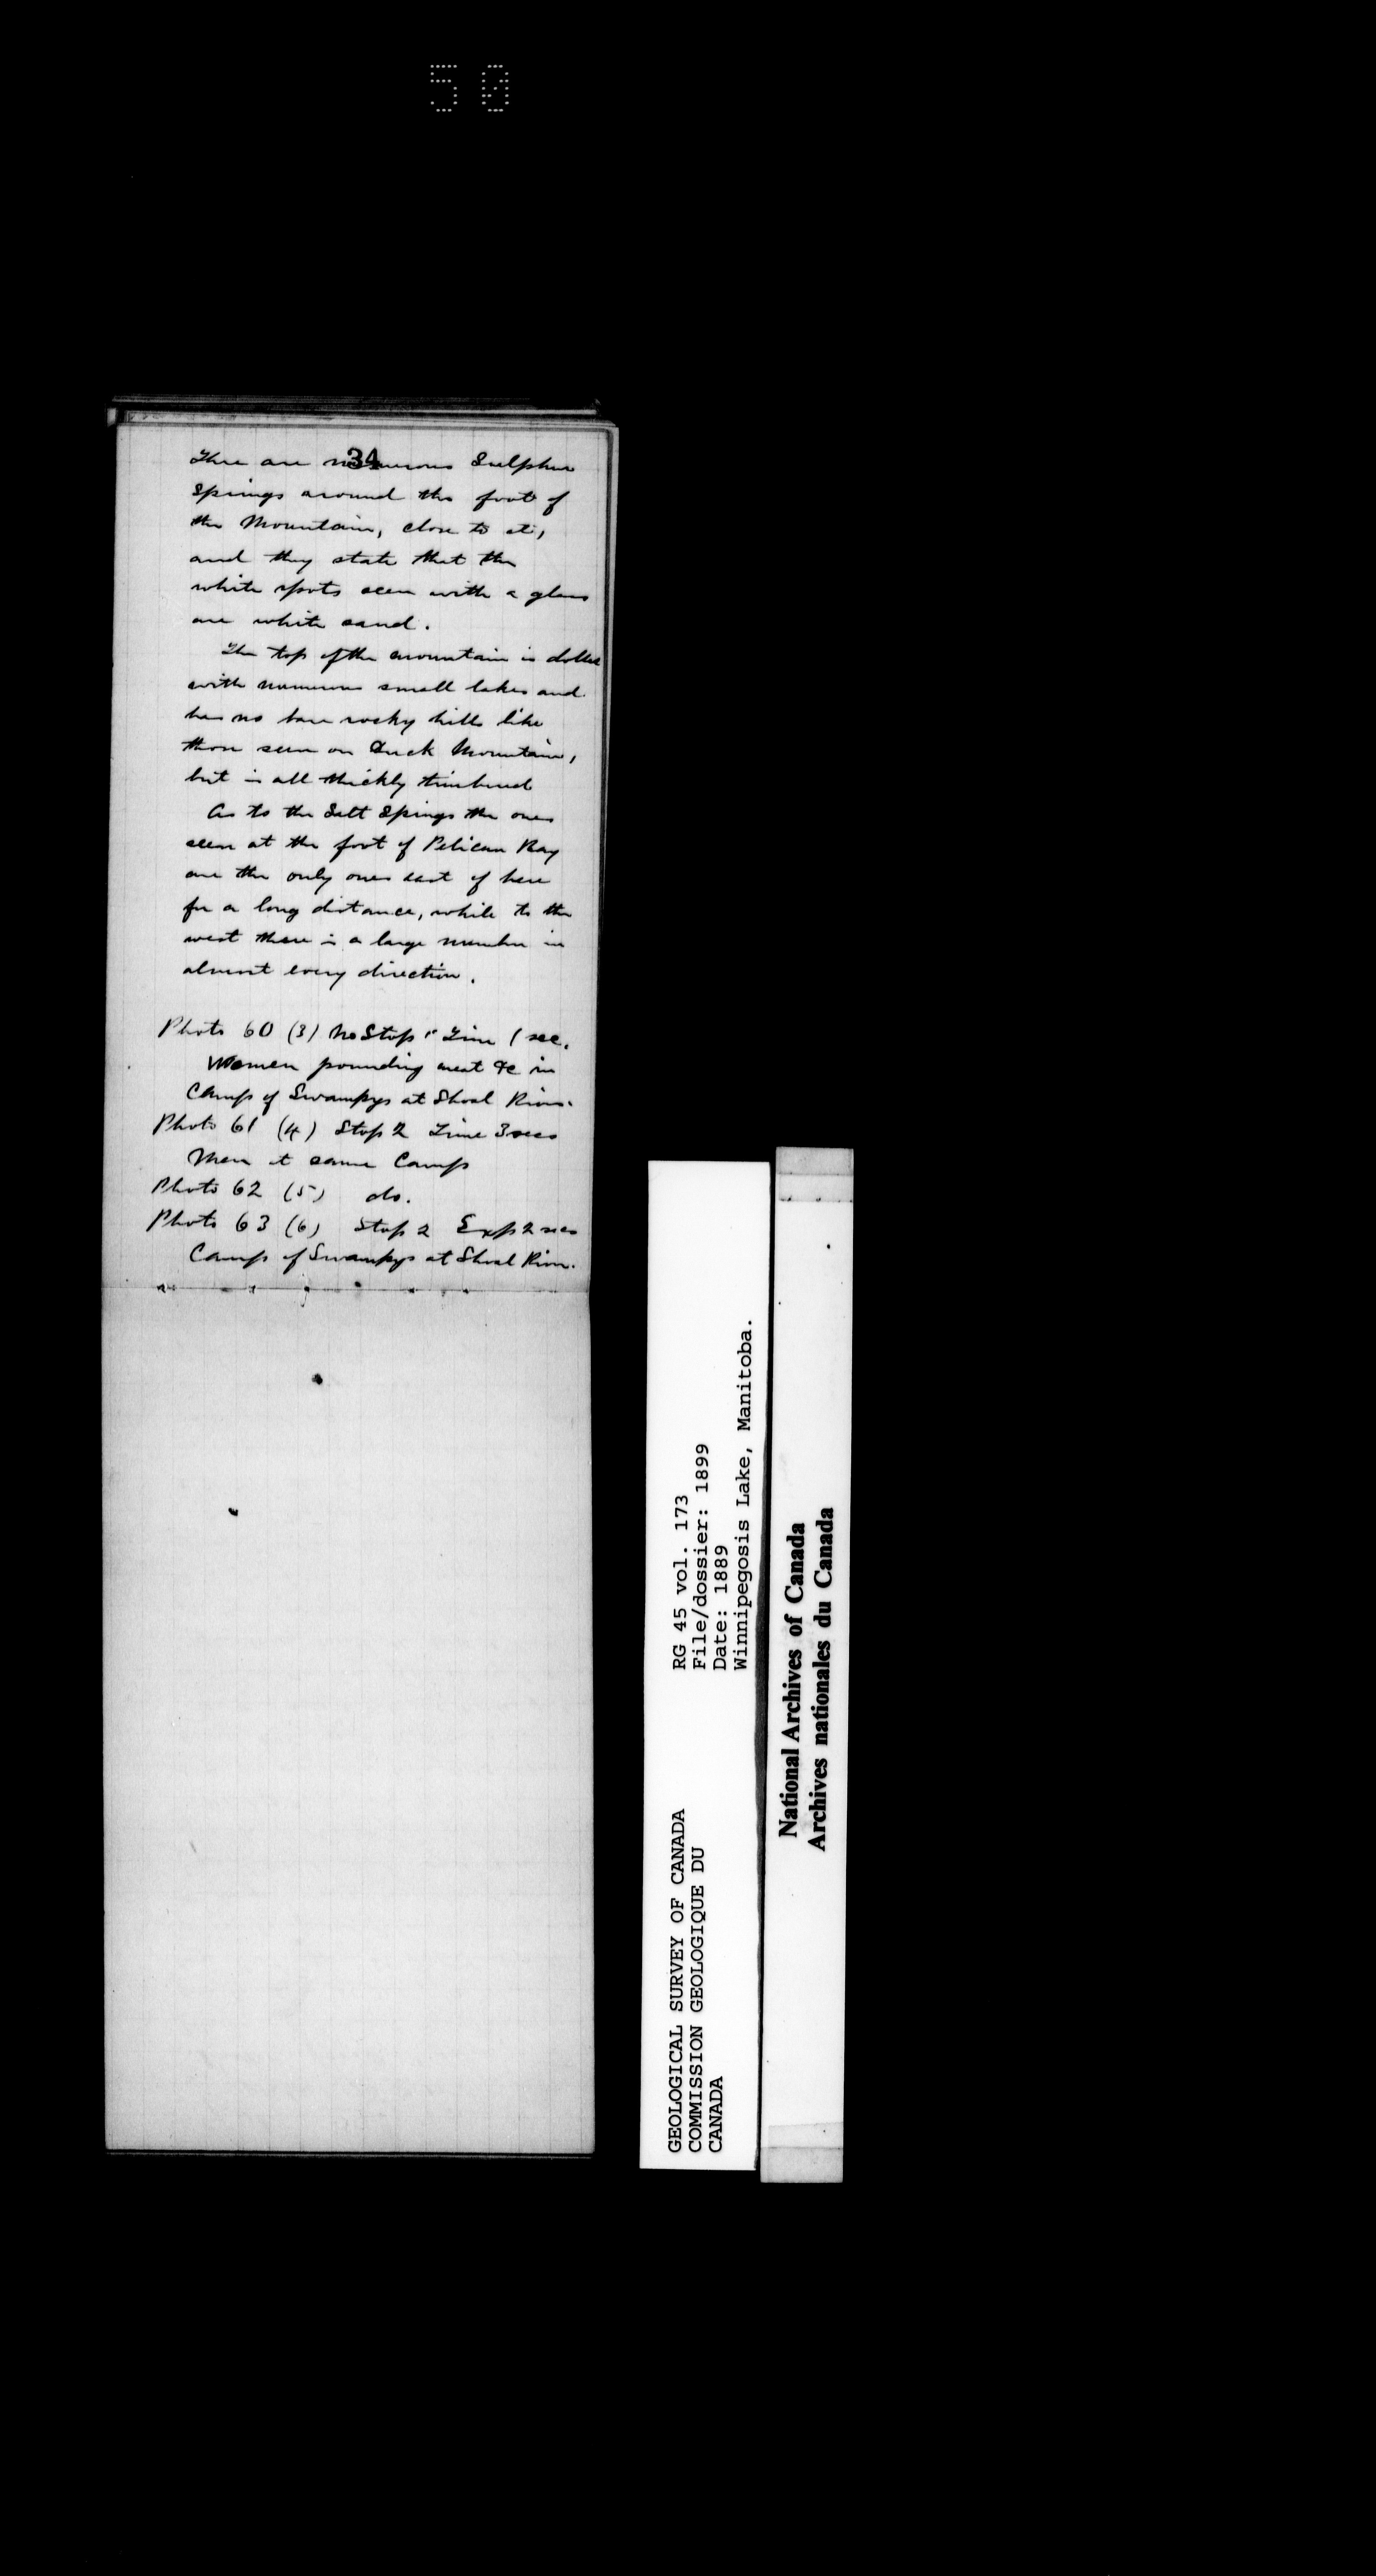 50
34
There are numerous Sulphur
Springs around the foot of
the Mountain, close to it,
and they state that the
white spots seen with a glass
are white sand.
The top of the mountain is dotted
with numerous small lakes and
has no bare rocky hills like
those seen on Duck Mountain,
but is all thickly timbered
As to the Salt Springs the ones
seen at the foot of Pelican Bay
are the only ones east of here
for a long distance, while to the
west there is a large number in
almost every direction.
Photo 60 (3) No Stop " Time 1 sec.
Women pounding meat &c in
Camp of Swampys at Shoal River.
Photo 61 (4) Stop 2 Time 3 secs
Men at same Camp
Photo 62 (5) do.
Photo 63 (6) Stop 2 Exp 2 secs
Camp of Swampys at Shoal River.
GEOLOGICAL SURVEY OF CANADA
COMMISSION GEOLOGIQUE DU
CANADA
RG 45 vol. 173
File/dossier: 1899
Date: 1889
Winnipegosis Lake, Manitoba.
National Archives of Canada
Archives nationales du Canada